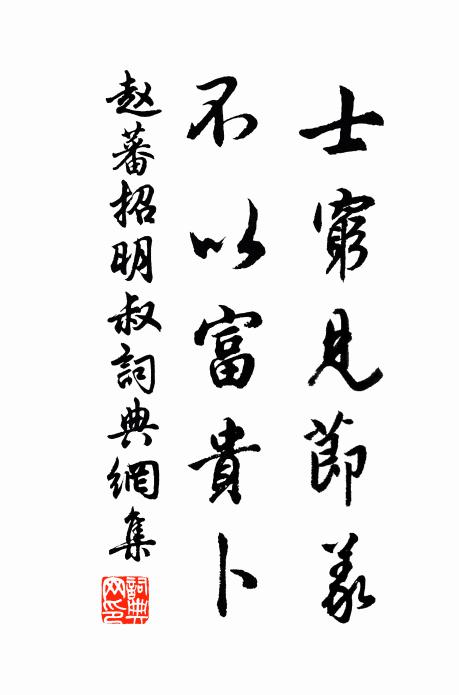 士窮見節義
不以富貴卜
赵蕃招明叔詞典網集
詞典網印